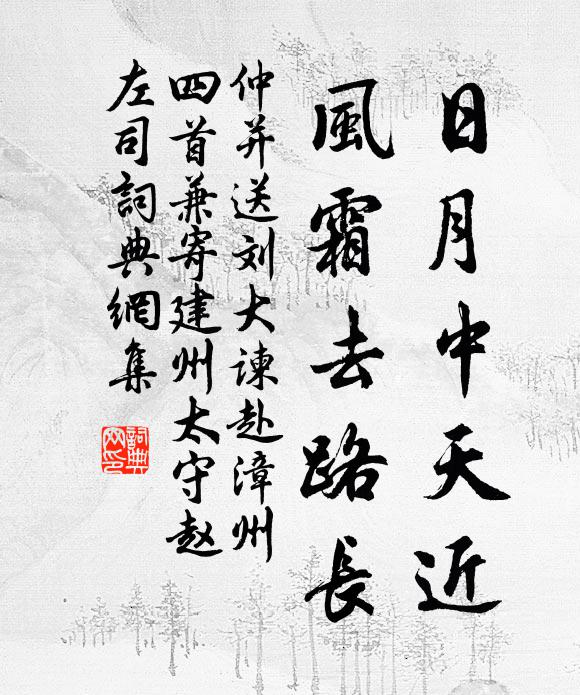 日月中天近
風霜去路長
仲并送刘大諫赴漳州
四首兼寄建州太守赵
左司詞典網集
詞典网印